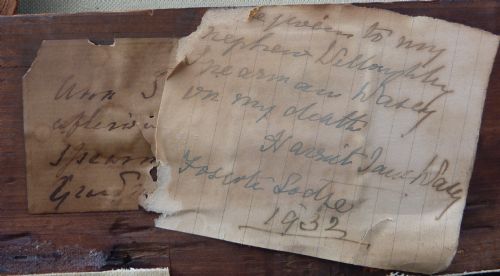 Ann S
afterw
Spearm
Grand
be given to my
nephew Willoughby
Spearman Wasey
on my death
Harriet Jane Wasey
Foscote Lodge
1932